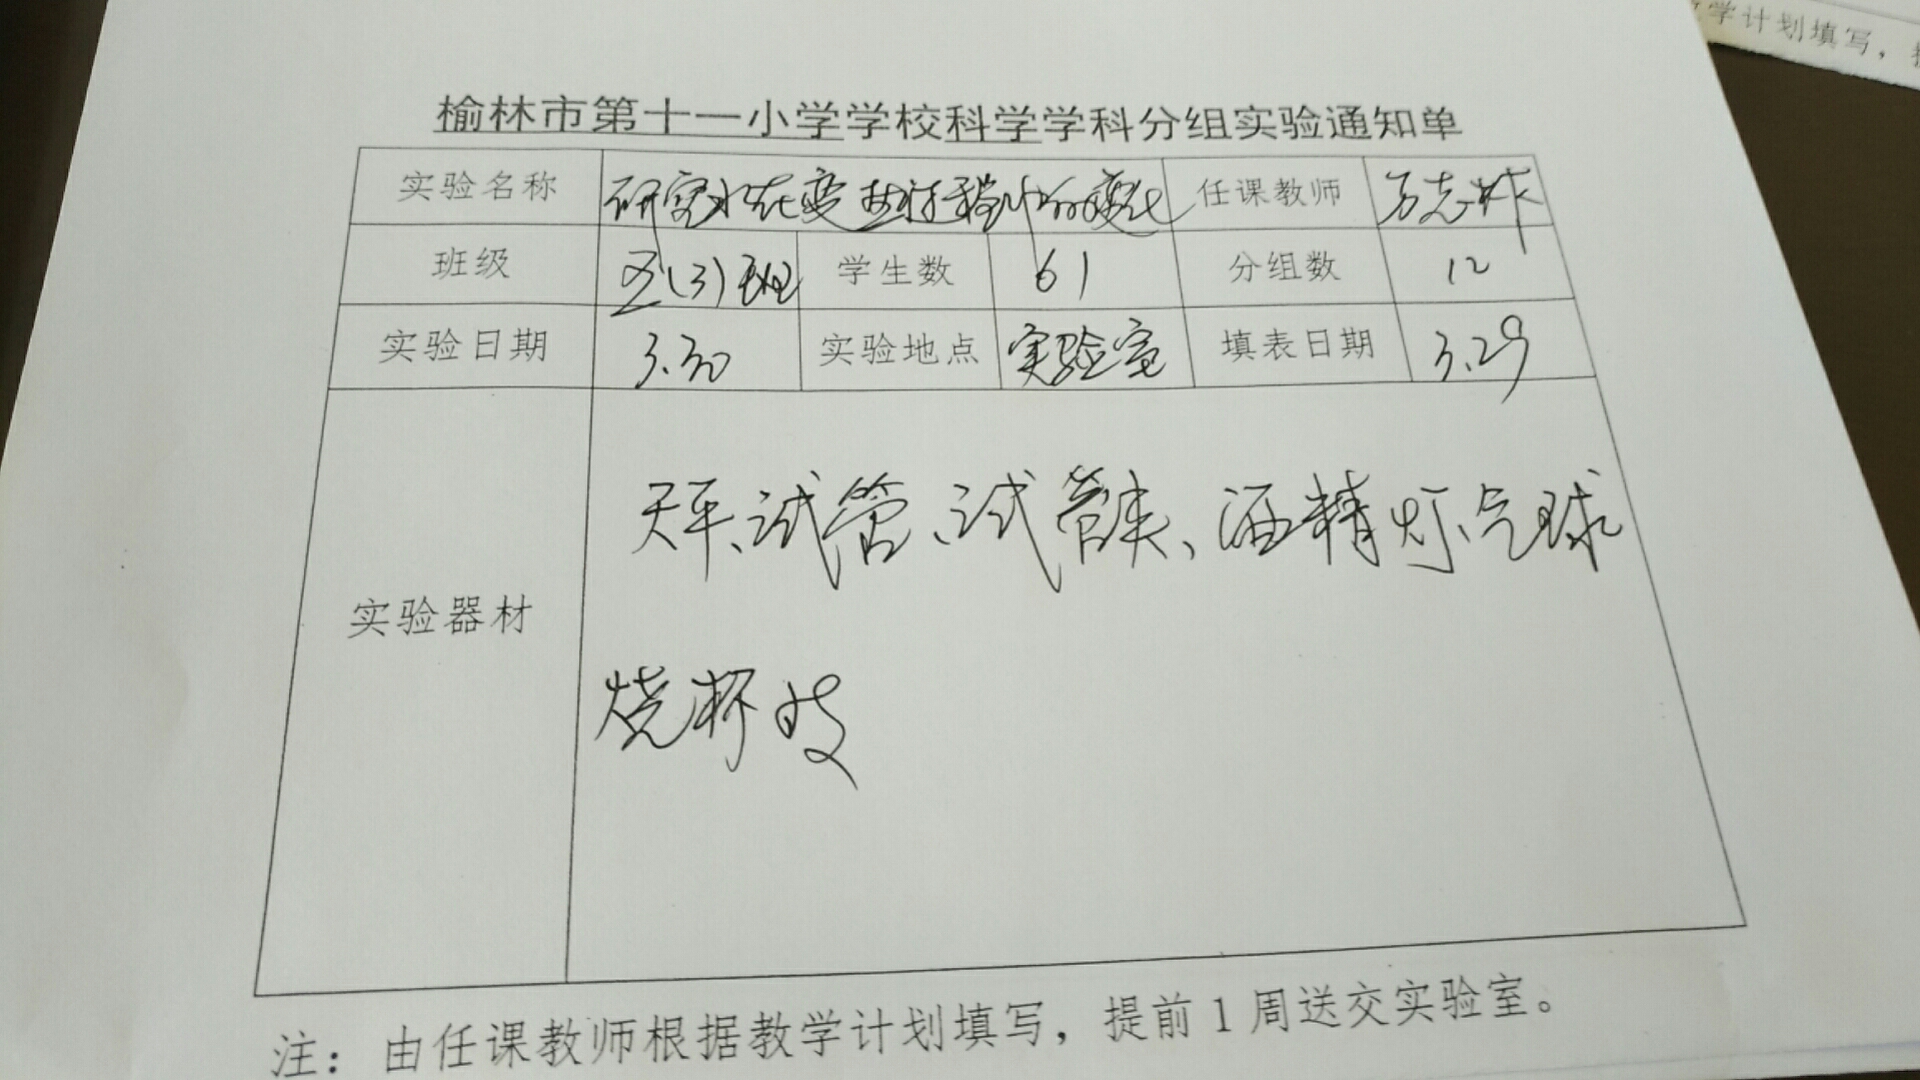 学计划填写，
榆林市第十一小学学校科学学科分组实验通知单
实验名称 研究水在变热过程中的变化 任课教师 万志
班级 五(3)班 学生数 61 分组数 12
实验日期 3.30 实验地点 实验室 填表日期 3.29
天平、试管、试管夹、酒精灯、气球
实验器材
烧杯
注：由任课教师根据教学计划填写，提前1周送交实验室。